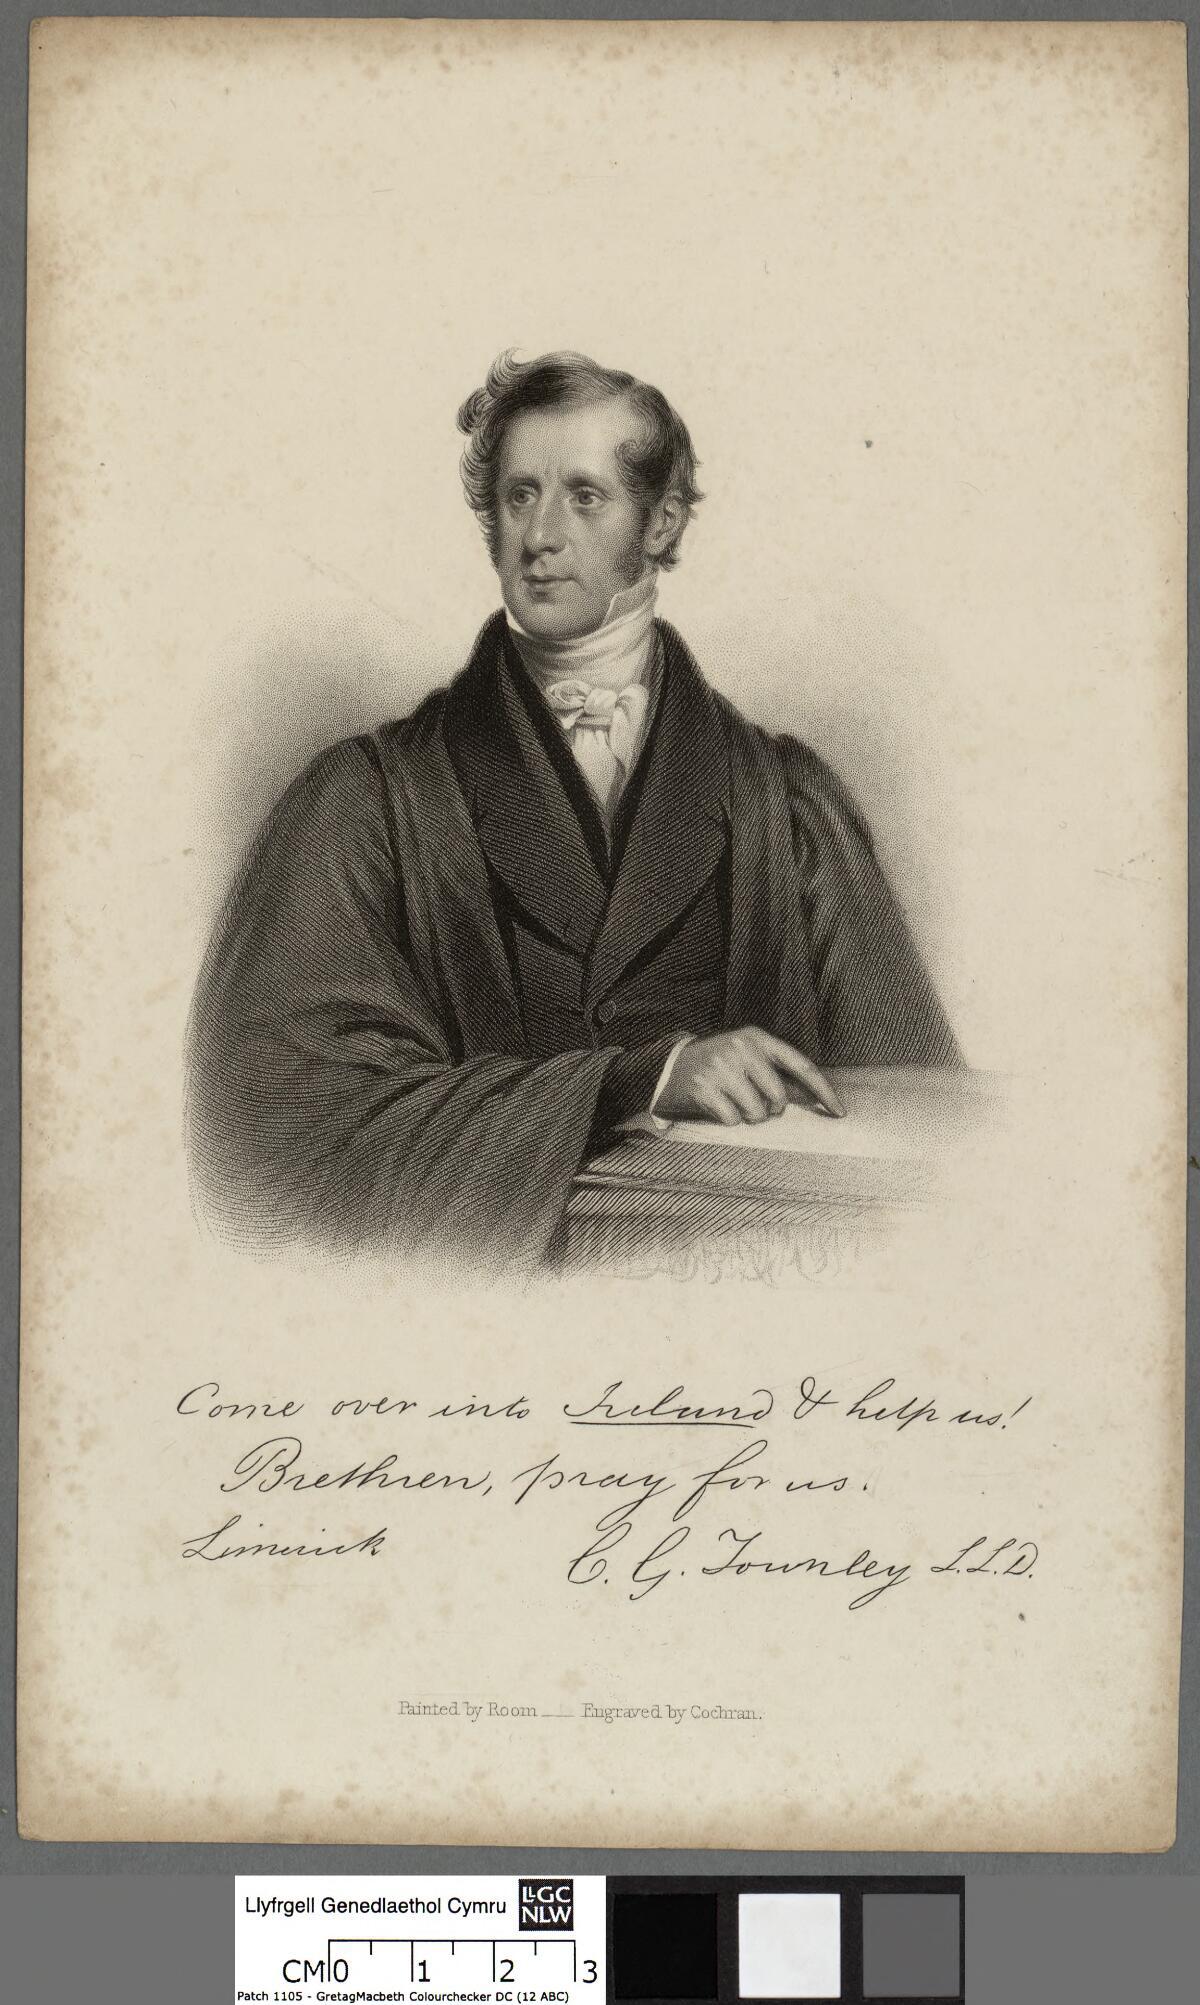 Come over into Ireland & help us!
Brethren, pray for us.
Limerick
C. G. Townley L.L.D.
Painted by Room — Engraved by Cochran.
Llyfrgell Genedlaethol Cymru
LLGC
NLW
CM 0 1 2 3
Patch 1105 - GretagMacbeth Colourchecker DC (12 ABC)